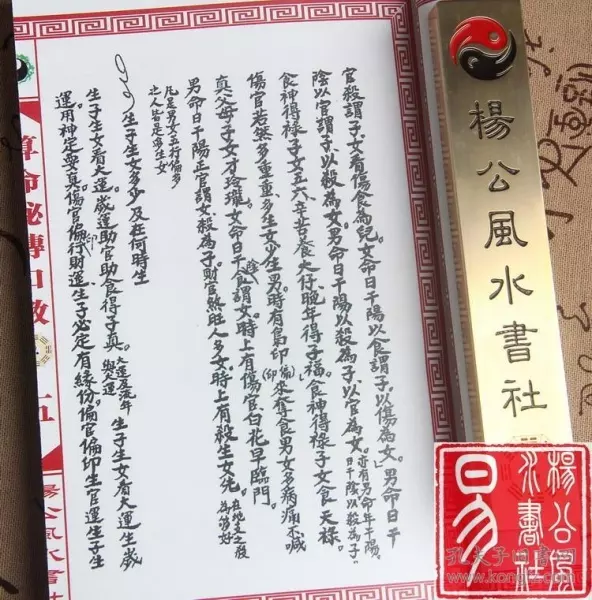 官殺謂子女看傷食為兒女命日干陽以食謂子以傷為女。男命日干
陰以官謂子以殺為女。男命日干陽以殺為子以官為女。
食神得祿子女五六，辛苦養大仔晚年得子福。食神得祿子女食天祿。
傷官若然多重重，多生女少生男時有梟印來奪食男女多病痛不
真父母子女才玲瓏。女命日干食謂女時上有傷官白花早臨門。
男命日干陽正官謂女殺為子財官煞旺人多女時上有殺生女先。
凡是男女五行偏多
之人皆是多生女
生子生女多少及在何時生
生子生女看大運。歲運助官助食得子真。大運及流年
生子生女看大運生歲
運用神定要真傷官偏行財運生子必定有緣份。偏官偏印生官運生子生
算命秘傳口教
五
楊公風水書社
楊公風水書社
楊公風水書社
易
孔夫子旧书网